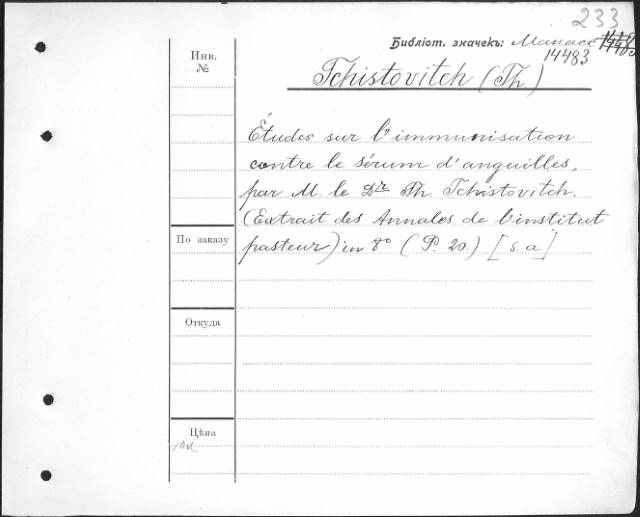 233
Библіот. значекъ: Манасс
14483
Инв.
№
Tchistovitch (Th)
Études sur l'immunisation
contre le sérum d'anguilles,
par M. le Dr Th. Tchistovitch.
(Extrait des Annales de l'institut
pasteur) in 8° (P. 20.) [s. a]
По заказу
Откуда
Цѣна